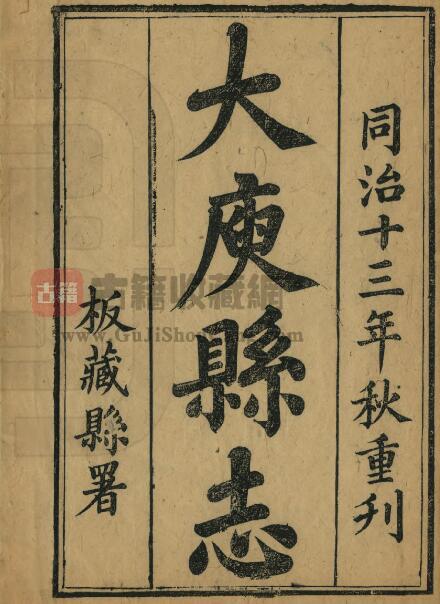 同治十三年秋重刋
大庾縣志
板藏縣署
古籍
古籍收藏網